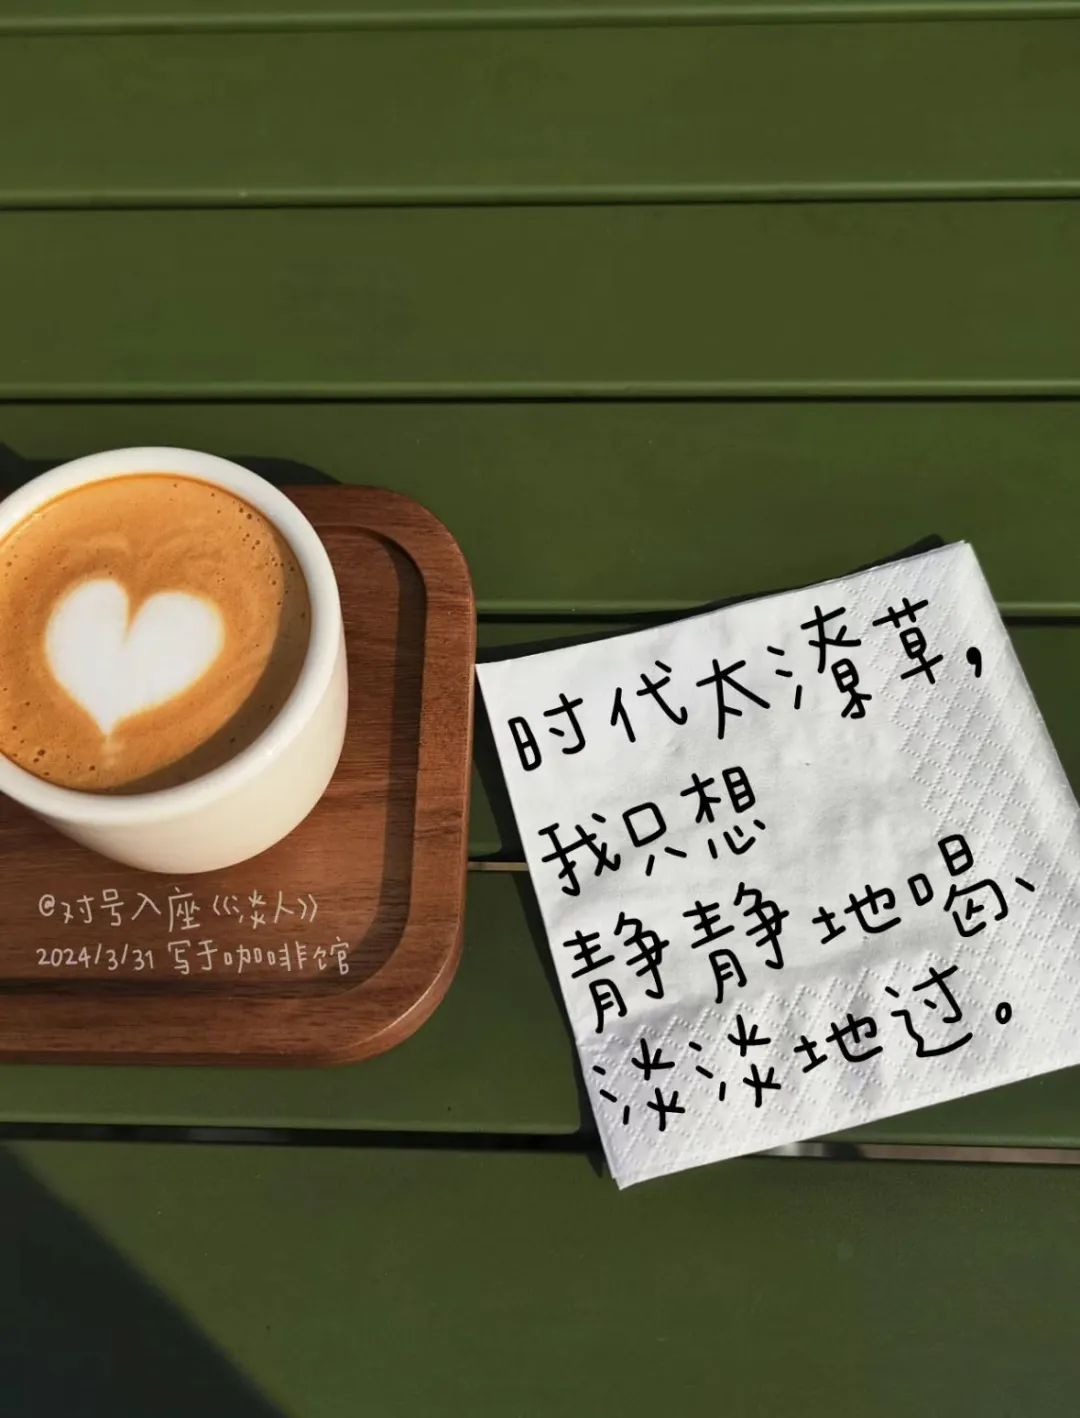 时代太潦草，
我只想
静静地喝、
淡淡地过。
@对号入座《淡人》
2024/3/31 写于咖啡馆